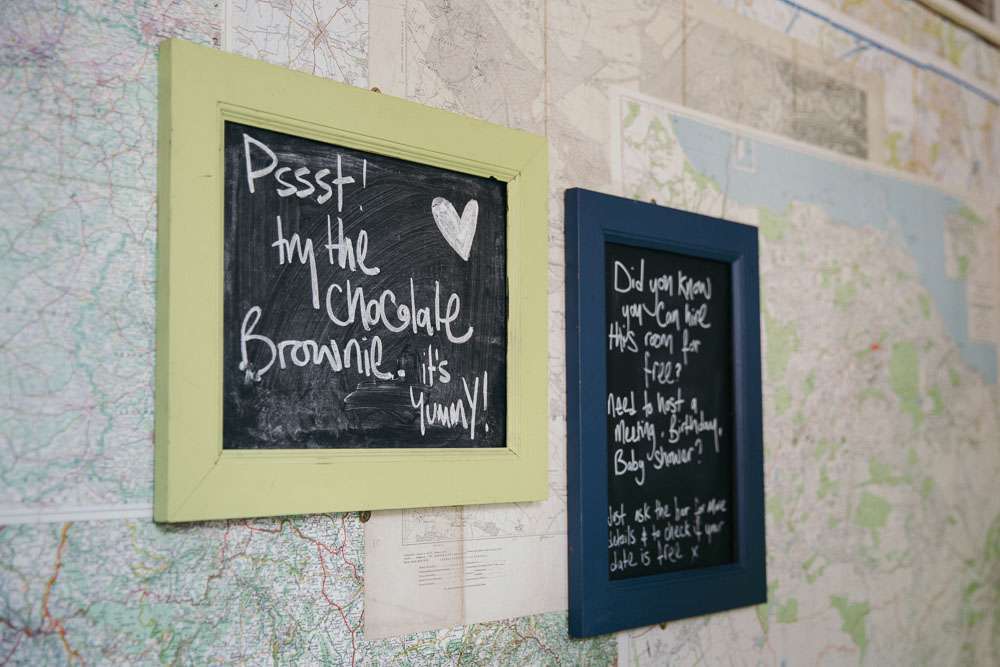 Pssst!
try the
chocolate
Brownie. it's
yummy!
Did you know
you can hire
this room for
free?
need to host a
meeting. Birthday.
Baby shower?
Just ask the bar for more
details & to check if your
date is free x